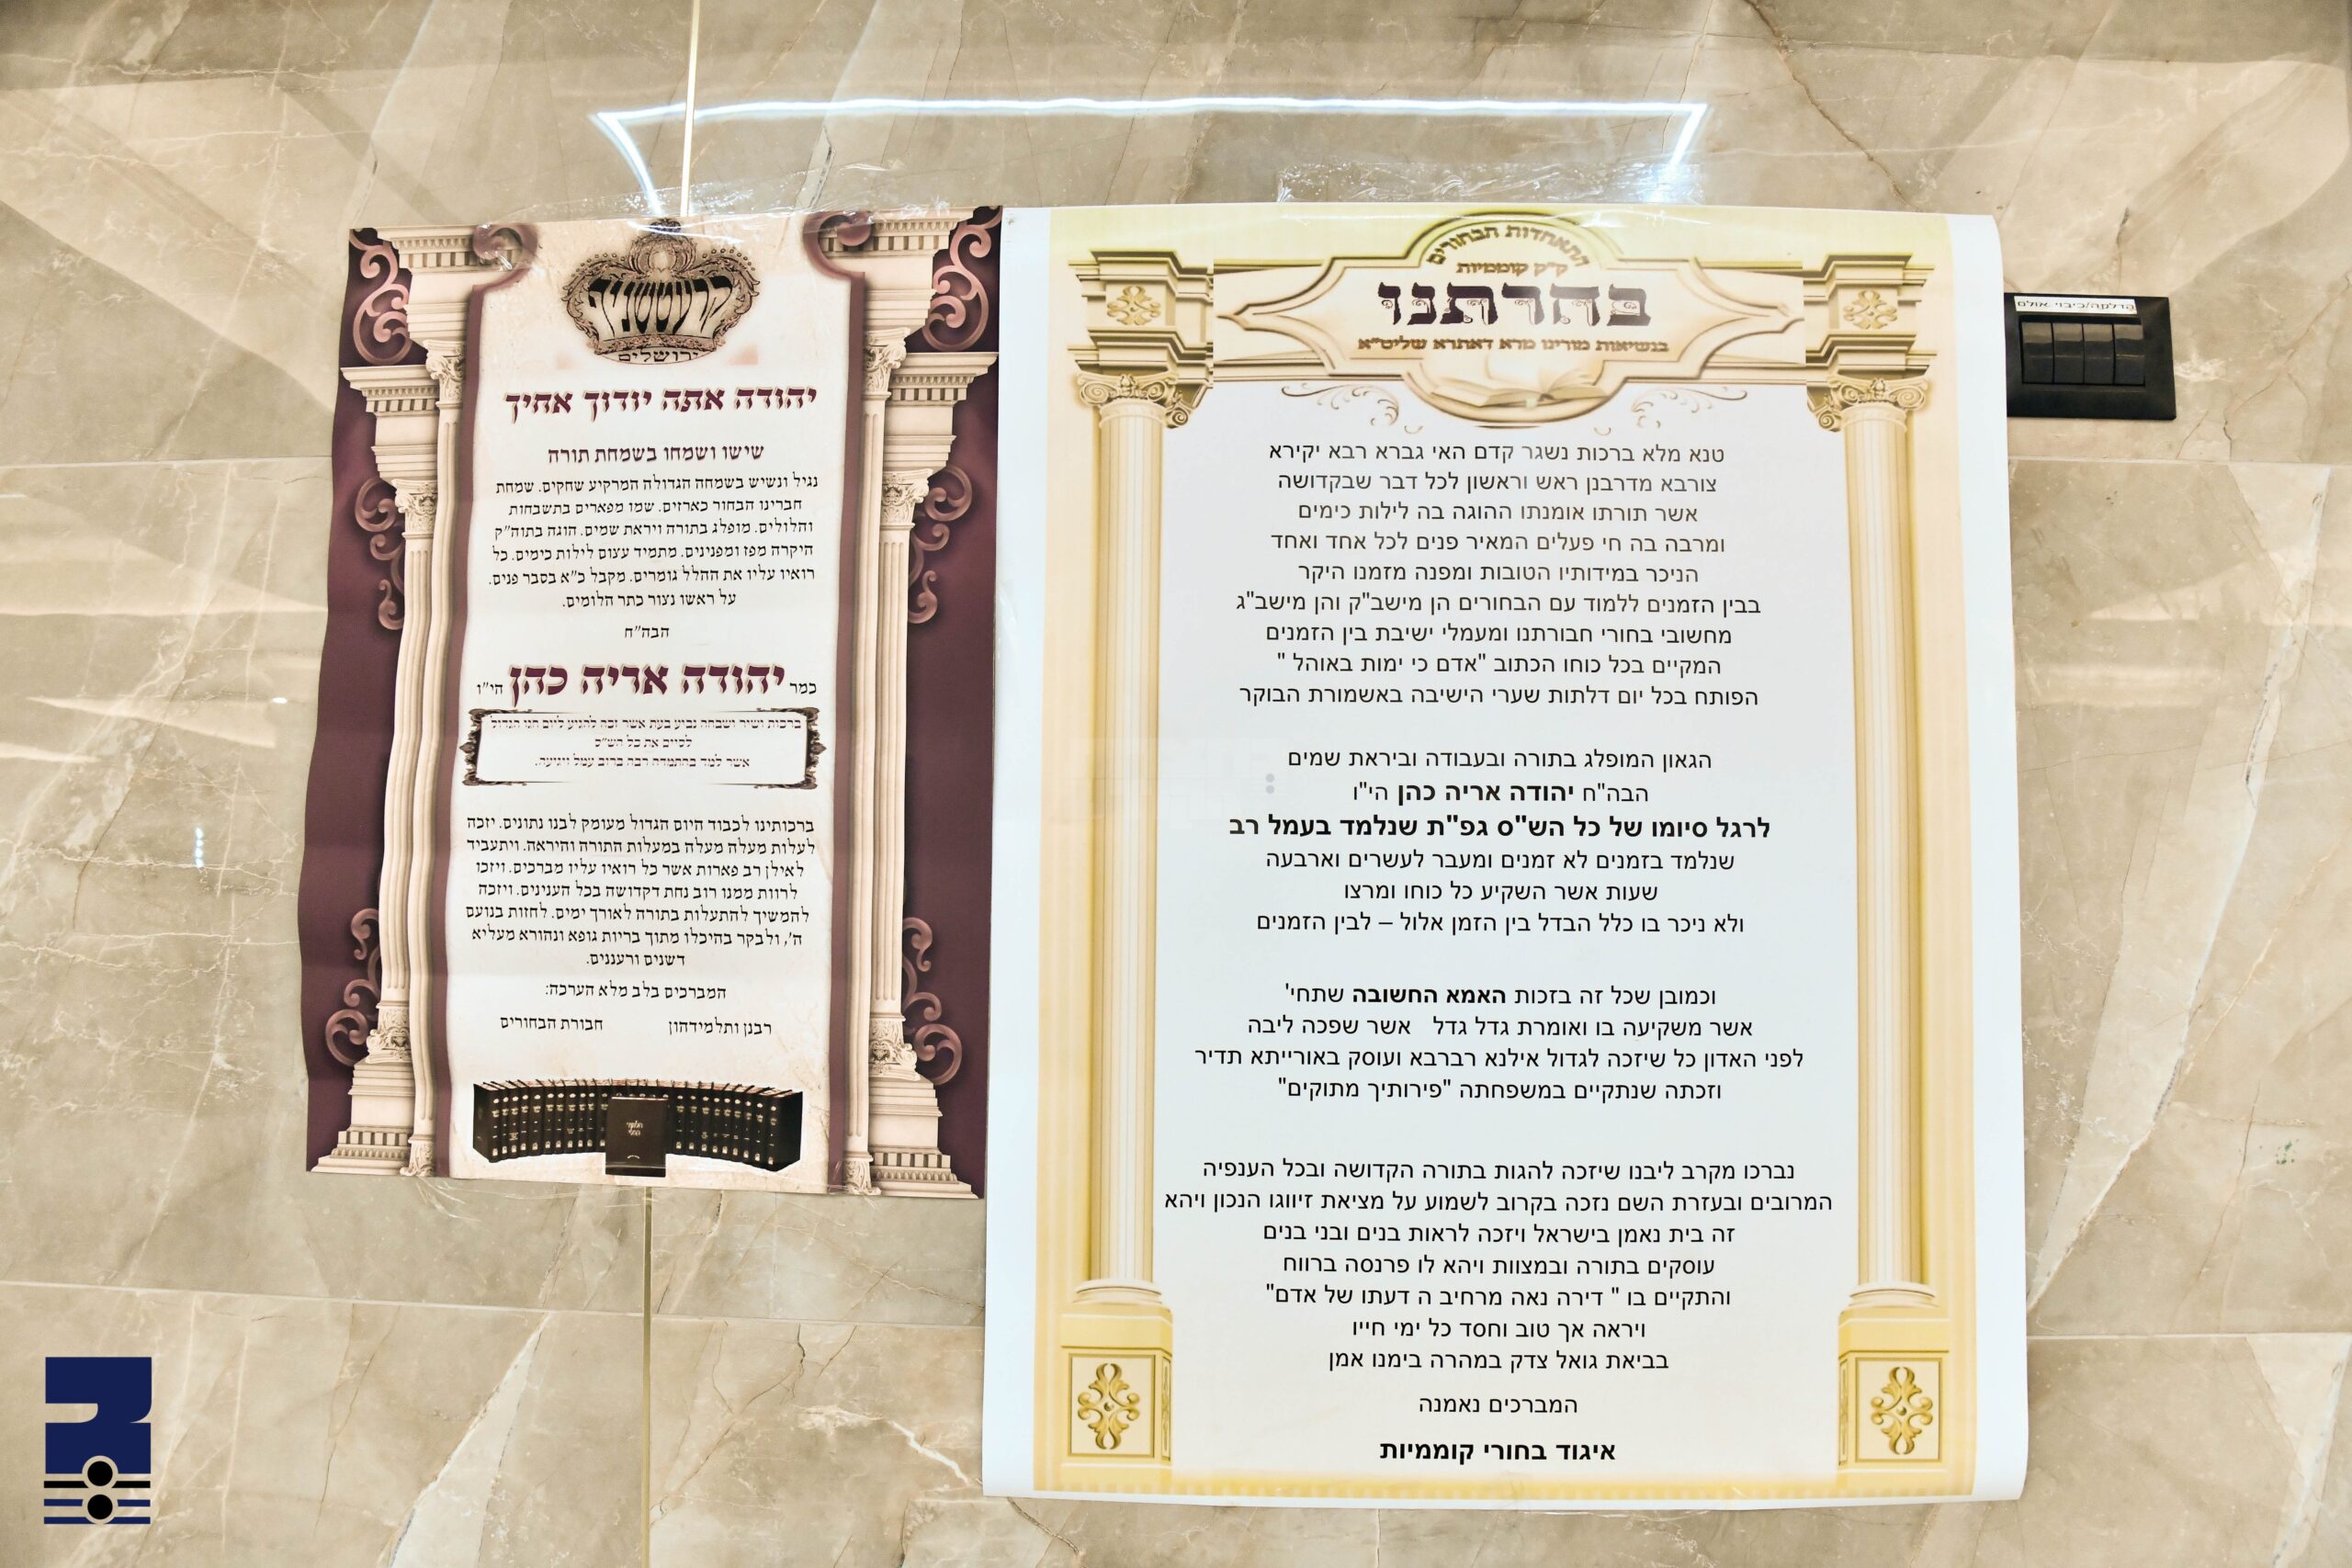 קרעטשניף
ירושלים
יהודה אתה יודוך אחיך
שישו ושמחו בשמחת תורה
נגיל ונשיש בשמחה הגדולה המרקיע שחקים. שמחת
חברינו הבחור כארזים. שמו מפארים בתשבחות
והלולים. מופלג בתורה ויראת שמים. הוגה בתוה"ק
היקרה מפז ומפנינים. מתמיד עצום לילות כימים. כל
רואיו עליו את ההלל גומרים. מקבל כ"א בסבר פנים.
על ראשו נצור כתר הלומים.
הבה"ח
כמר יהודה אריה כהן הי"ו
ברכות ושיר ושבחה נביע בעת אשר זכה להגיע ליום חגו הגדול
לסיים את כל הש"ס
אשר למד בהתמדה רבה ברוב עמל ויגיעה.
ברכותינו לכבוד היום הגדול מעומק לבנו נתונים. יזכה
לעלות מעלה מעלה במעלות התורה והיראה. ויתעביד
לאילן רב פארות אשר כל רואיו עליו מברכים. ויזכו
לרוות ממנו רוב נחת דקדושה בכל הענינים. ויזכה
להמשיך להתעלות בתורה לאורך ימים. לחזות בנועם
ה', ולבקר בהיכלו מתוך בריות גופא ונהורא מעליא
דשנים ורעננים.
המברכים בלב מלא הערכה:
רבנן ותלמידהון חבורת הבחורים
התאחדות הבחורים
ק"ק קוממיות
בחרתנו
בנשיאות מורינו מרא דאתרא שליט"א
טנא מלא ברכות נשגר קדם האי גברא רבא יקירא
צורבא מדרבנן ראש וראשון לכל דבר שבקדושה
אשר תורתו אומנתו ההוגה בה לילות כימים
ומרבה בה חי פעלים המאיר פנים לכל אחד ואחד
הניכר במידותיו הטובות ומפנה מזמנו היקר
בבין הזמנים ללמוד עם הבחורים הן מישב"ק והן מישב"ג
מחשובי בחורי חבורתנו ומעמלי ישיבת בין הזמנים
המקיים בכל כוחו הכתוב "אדם כי ימות באוהל "
הפותח בכל יום דלתות שערי הישיבה באשמורת הבוקר
הגאון המופלג בתורה ובעבודה וביראת שמים
הבה"ח יהודה אריה כהן הי"ו
לרגל סיומו של כל הש"ס גפ"ת שנלמד בעמל רב
שנלמד בזמנים לא זמנים ומעבר לעשרים וארבעה
שעות אשר השקיע כל כוחו ומרצו
ולא ניכר בו כלל הבדל בין הזמן אלול – לבין הזמנים
וכמובן שכל זה בזכות האמא החשובה שתחי'
אשר משקיעה בו ואומרת גדל גדל אשר שפכה ליבה
לפני האדון כל שיזכה לגדול אילנא רברבא ועוסק באורייתא תדיר
וזכתה שנתקיים במשפחתה "פירותיך מתוקים"
נברכו מקרב ליבנו שיזכה להגות בתורה הקדושה ובכל הענפיה
המרובים ובעזרת השם נזכה בקרוב לשמוע על מציאת זיווגו הנכון ויהא
זה בית נאמן בישראל ויזכה לראות בנים ובני בנים
עוסקים בתורה ובמצוות ויהא לו פרנסה ברווח
והתקיים בו " דירה נאה מרחיב ה דעתו של אדם"
ויראה אך טוב וחסד כל ימי חייו
בביאת גואל צדק במהרה בימנו אמן
המברכים נאמנה
איגוד בחורי קוממיות
הדלקה/כיבוי אולם